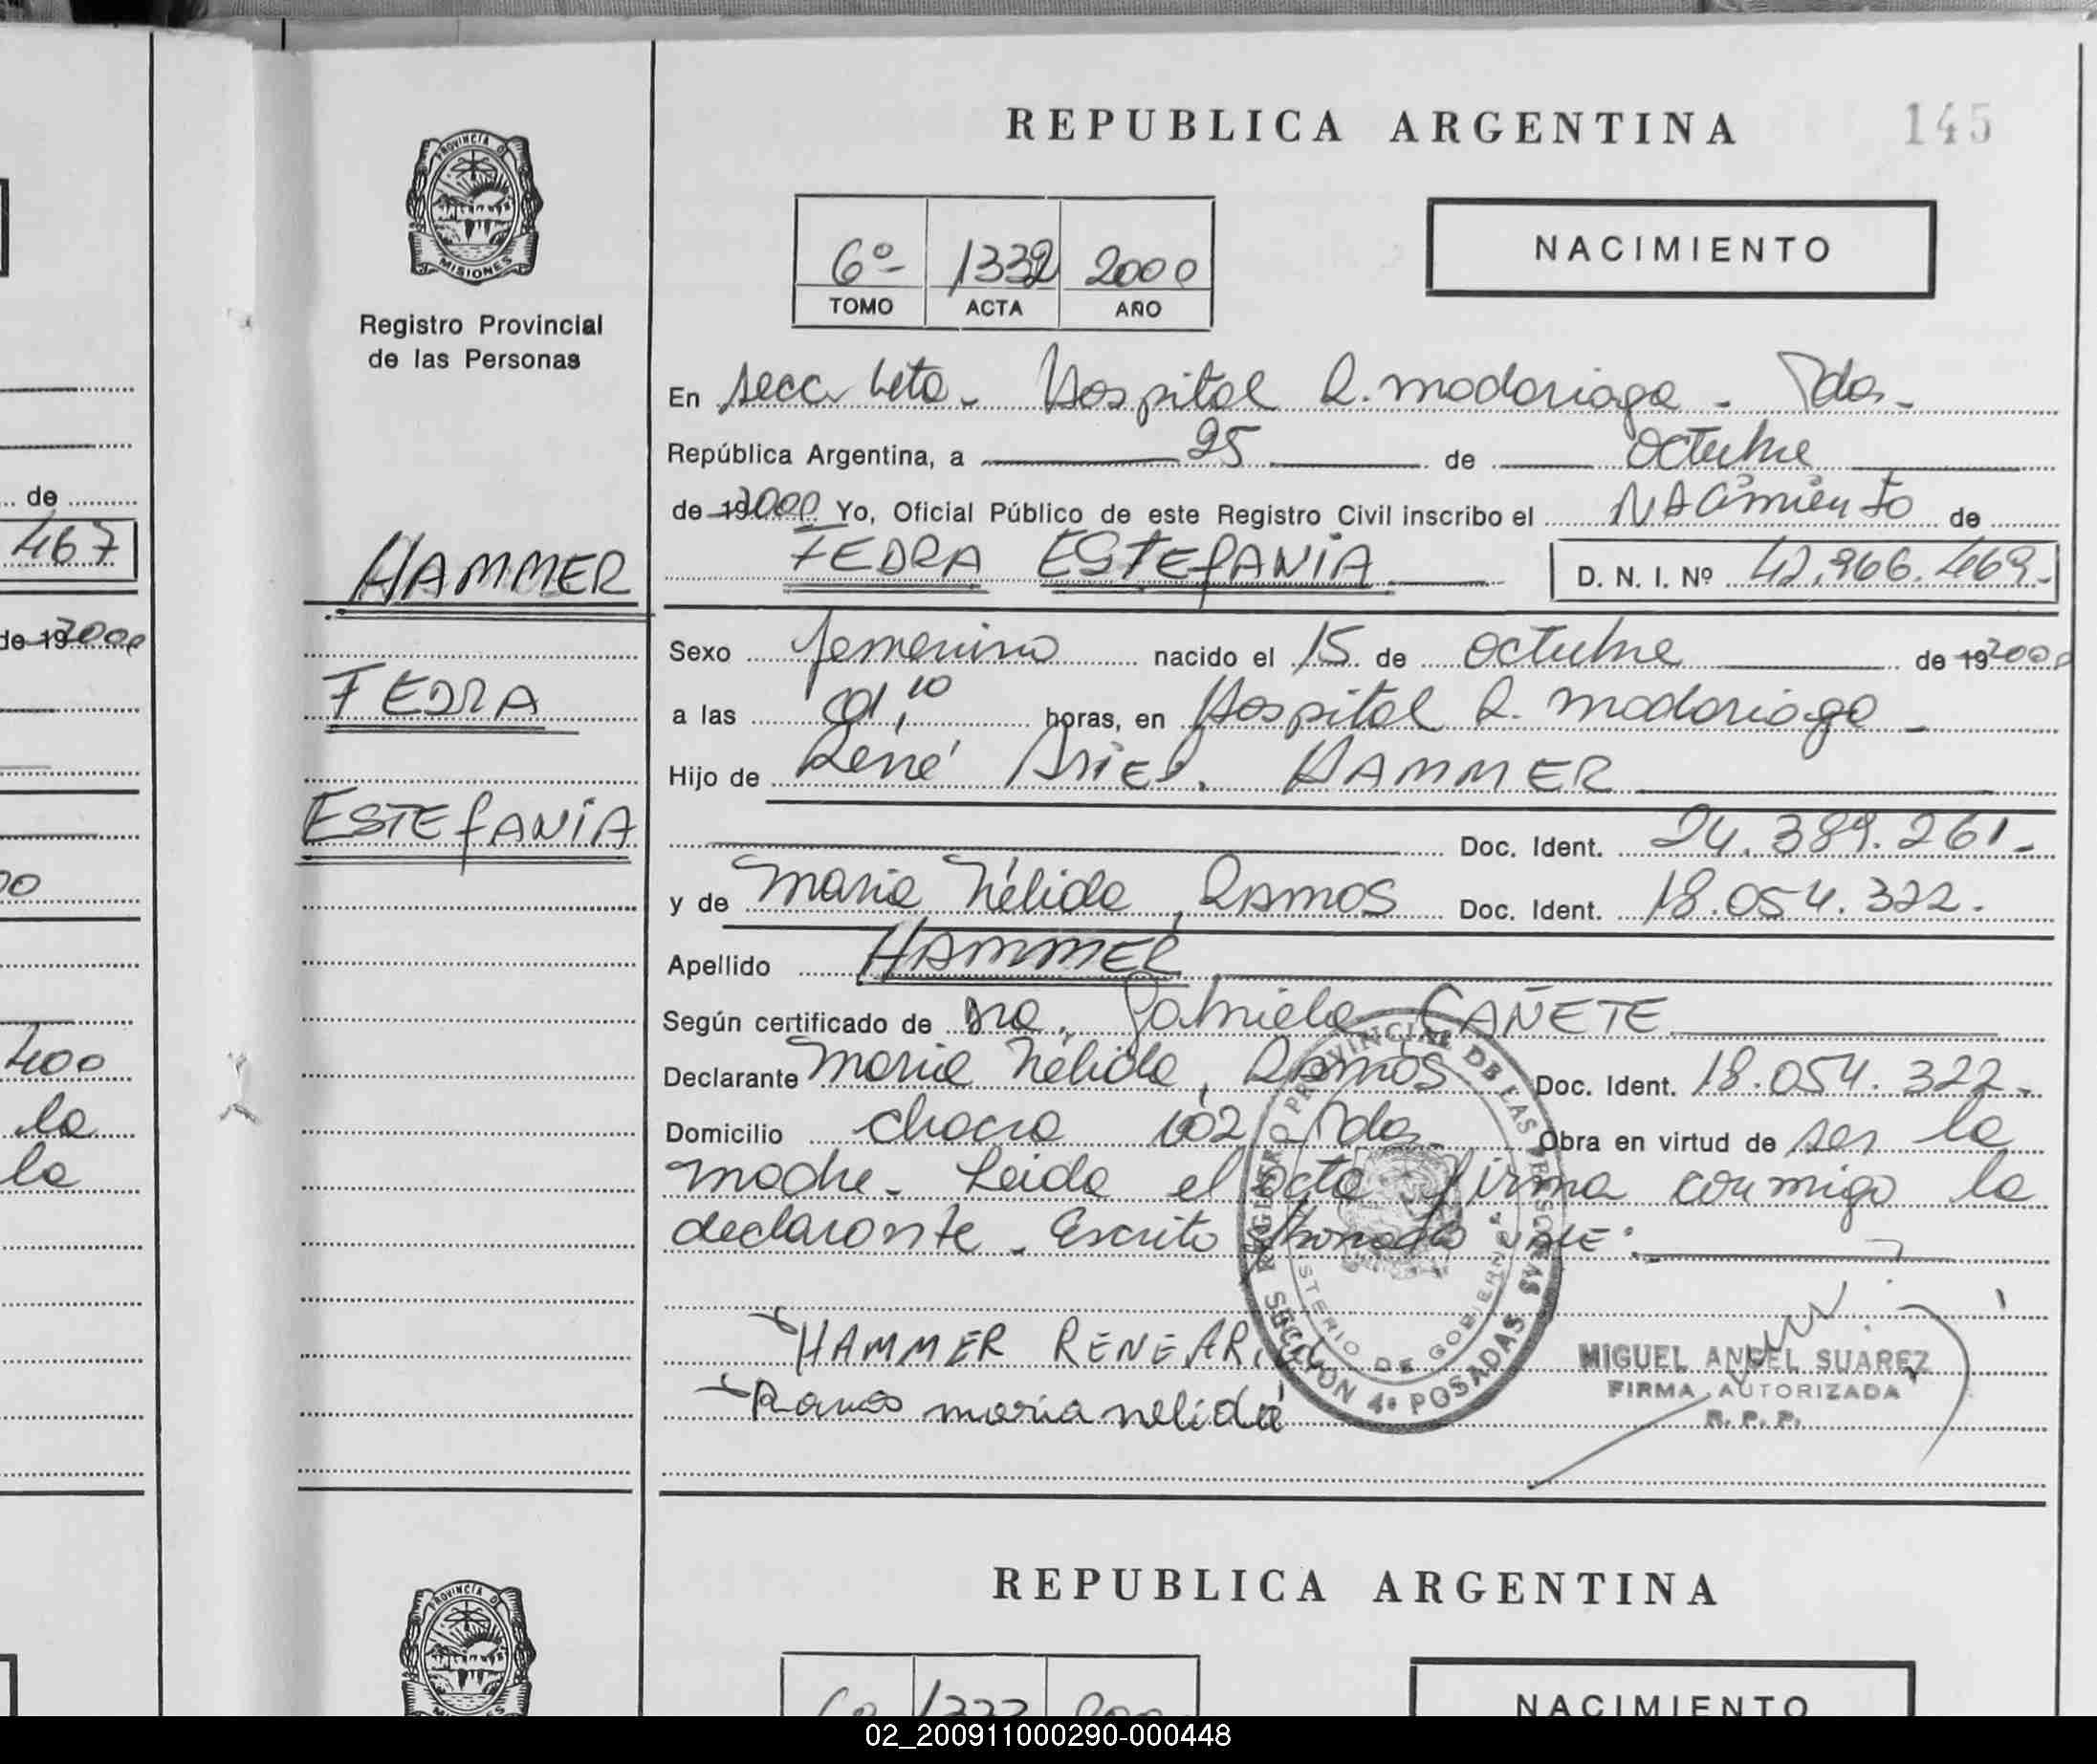 REPUBLICA ARGENTINA
145
PROVINCIA D
MISIONES
Registro Provincial
de las Personas
6º 1332 2000
TOMO ACTA AÑO
NACIMIENTO
En Secc 4ta. Hospital R. Madariaga - Pdas.
República Argentina, a 25 de Octubre
de 19 2000 Yo, Oficial Público de este Registro Civil inscribo el NAcimiento de
FEDRA ESTEfANIA D. N. I. Nº 42.966.469.-
HAMMER
FEDRA
ESTEfANIA
Sexo femenino nacido el 15 de Octubre de 19 2000
a las 01,10 horas, en Hospital R. Madariaga -
Hijo de René Ariel, HAMMER
Doc. Ident. 24.389.261.-
y de Maria Nélida, RAMOS Doc. Ident. 18.054.322.-
Apellido HAMMER
Según certificado de Dra. Gabriela CAÑETE
Declarante Maria Nélida, RAMOS Doc. Ident. 18.054.322.-
Domicilio chacra 102 Pdas. Obra en virtud de ser la
madre - Leida el acta firma conmigo la
declarante. Escrito VALE:
HAMMER RENE ARIEL
Ramos maria nelida
REGISTRO PROVINCIAL DE LAS PERSONAS
MINISTERIO DE GOBIERNO
SECCION 4ª POSADAS
MIGUEL ANGEL SUAREZ
FIRMA AUTORIZADA
R. P. P.
de
467
de 19 2000
00
400
la
la
REPUBLICA ARGENTINA
PROVINCIA D
6º 1333 2000
NACIMIENTO
02_200911000290-000448